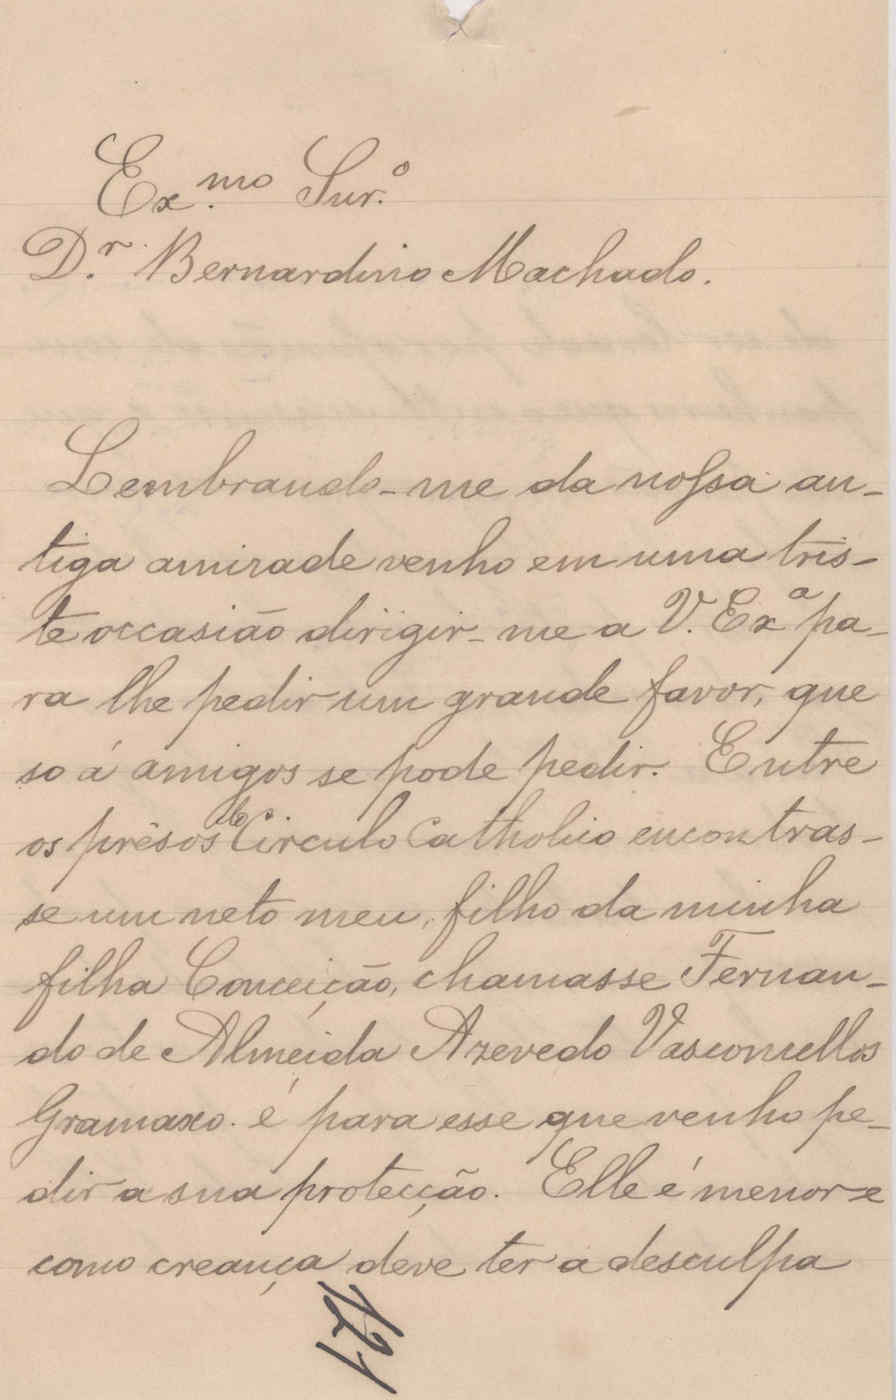 Ex.mo Snr.º
D.r Bernardino Machado.
Lembrando-me da nossa an-
tiga amizade venho em uma tris-
te occasião dirigir-me a V. Exª pa-
ra lhe pedir um grande favor, que
so á amigos se pode pedir. Entre
os prêsos do Circulo Catholico encontras-
se um neto meu, filho da minha
filha Conceição, chamasse Fernan-
do de Almeida Azevedo Vasconcellos
Gramaxo. é para esse que venho pe-
dir a sua protecção. Elle é menor e
como creança deve ter a desculpa
121